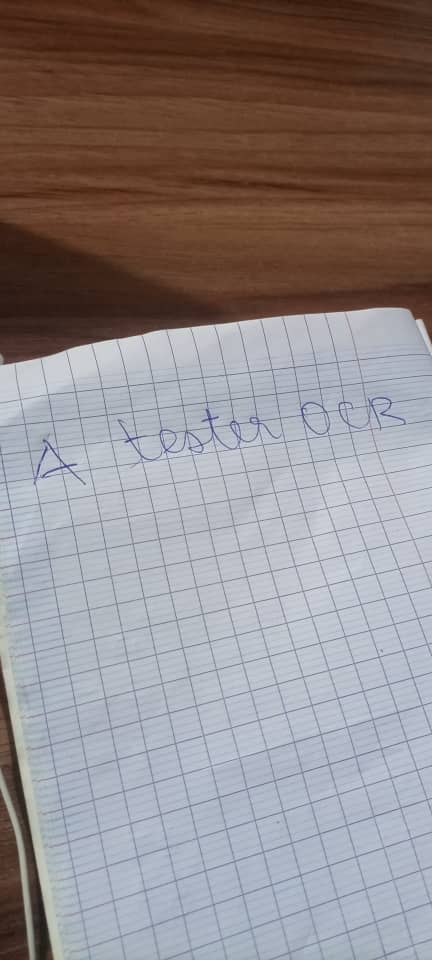 A tester OCR